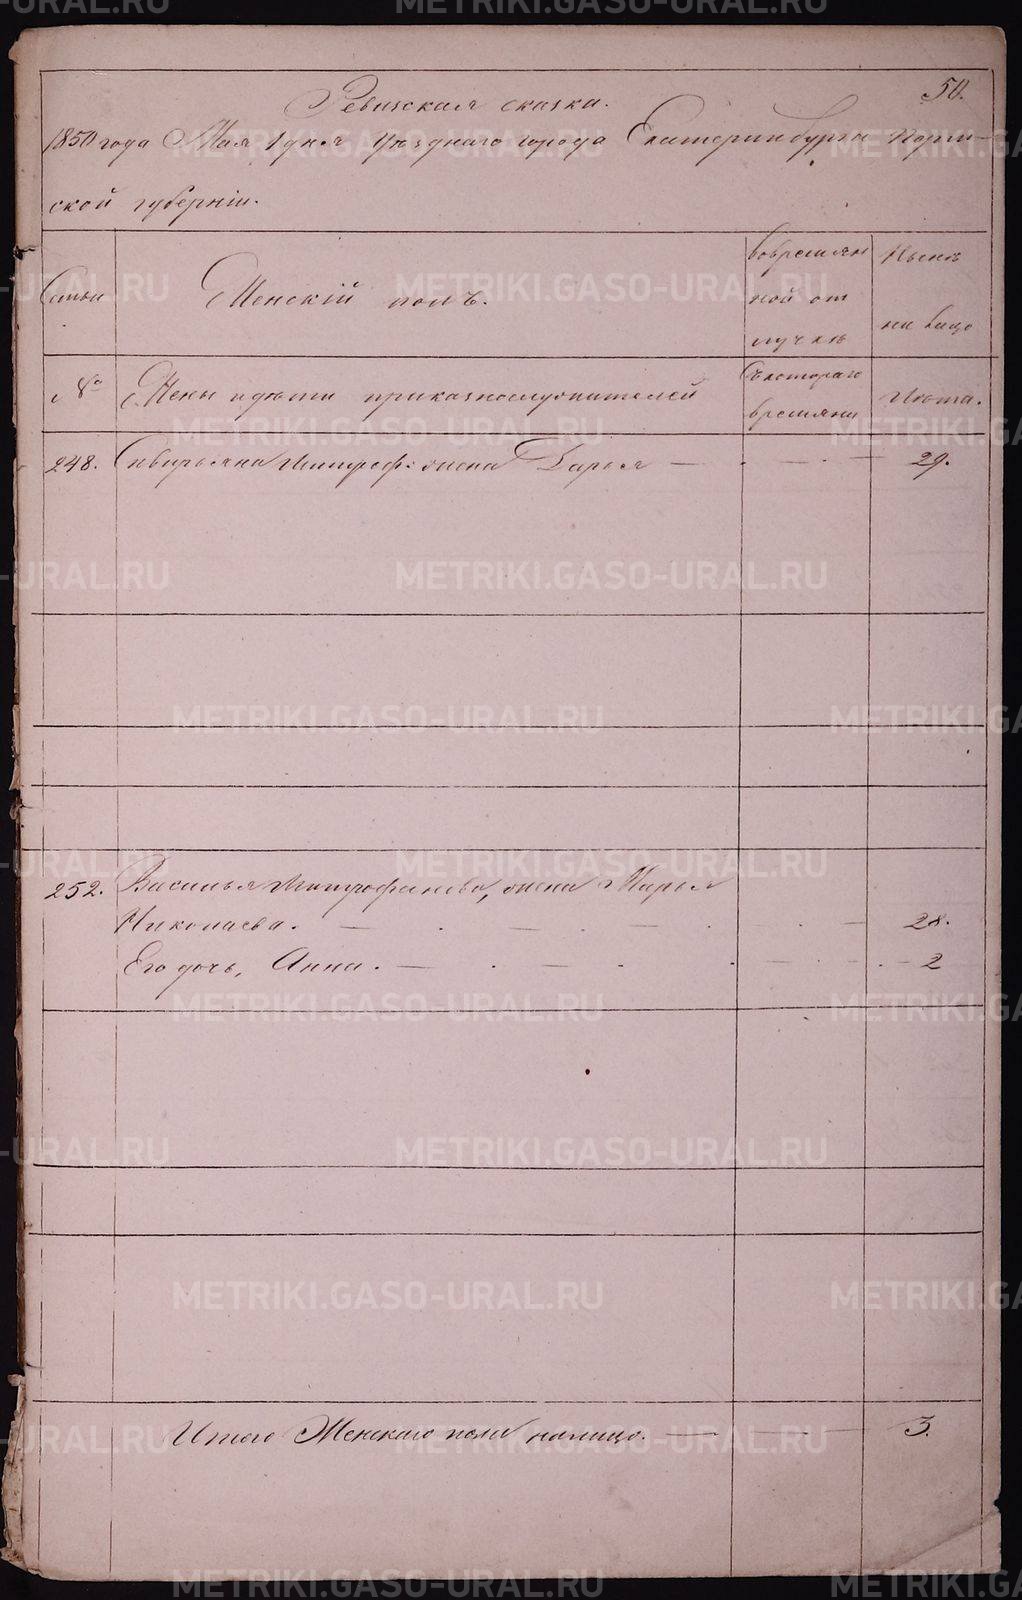 50.
Ревизская сказка.
1850 года Мая 1 дня Уѣзднаго города Екатеринбурга Перм-
ской губерніи.
Семьи
Женскій полъ.
Вовремян
ной от
лучкѣ
Нынѣ
на лицо
№
Жены и дѣти приказнослужителей
Съкотораго
времяни
Лѣта.
248. Митроф: жена Дарья — 29.
252. Василья Митрофанова, жена Марья
Николаева. — 28.
Его дочь, Анна. — 2
Итого Женскаго пола налицо. — 3.
METRIKI.GASO-URAL.RU